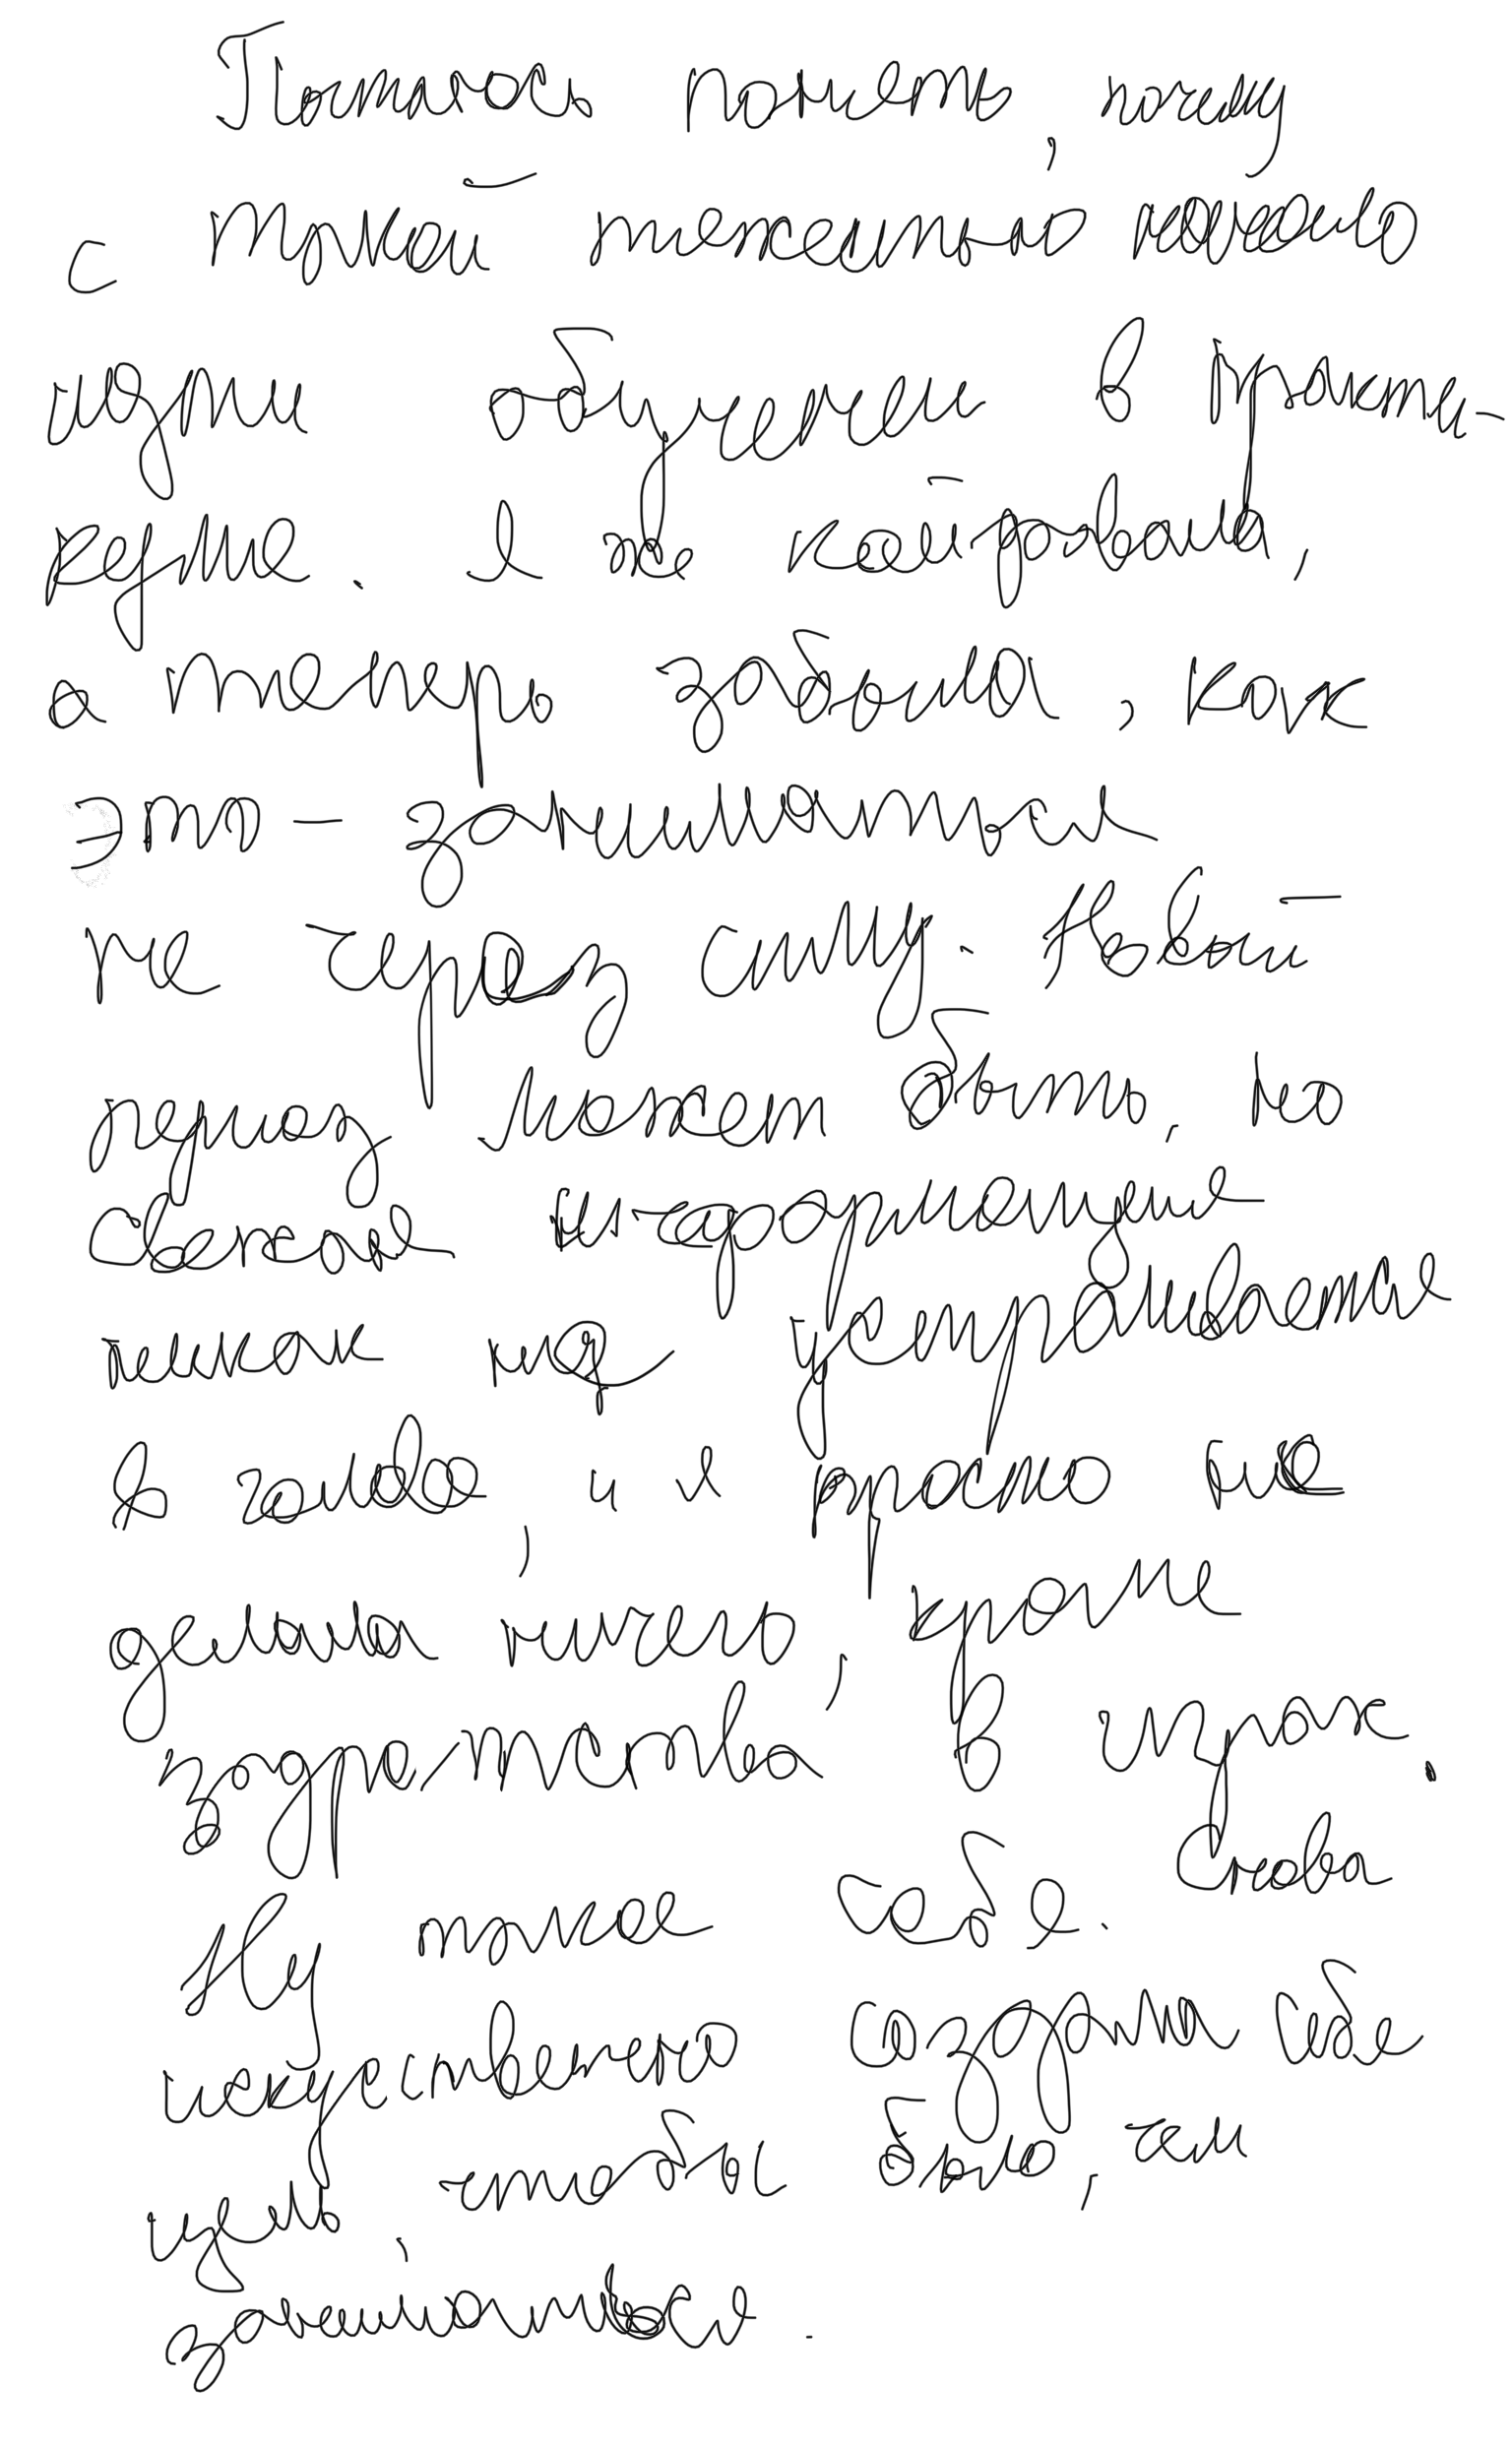 Пытаюсь понять, почему
с такой тяжестью начало
идти обучение в
Я же кайфовала,
а теперь забыла, как
это - заниматься
не через силу. Новый
период может быть, но

никак не
в голове, и я просто не
делаю ничего, кроме
задротства в играх.
Ну такое себе. Снова
искусственно создаю себе
цель, чтобы было, чем
заниматься.